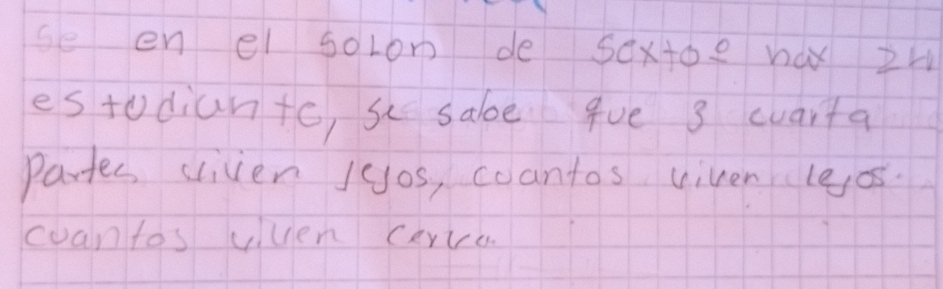 se en el solon de sexto º hay 24
estudiante, se sabe que 3 cuarta
partes viven lejos, cuantos viven lejos.
cuantos viven cerca.